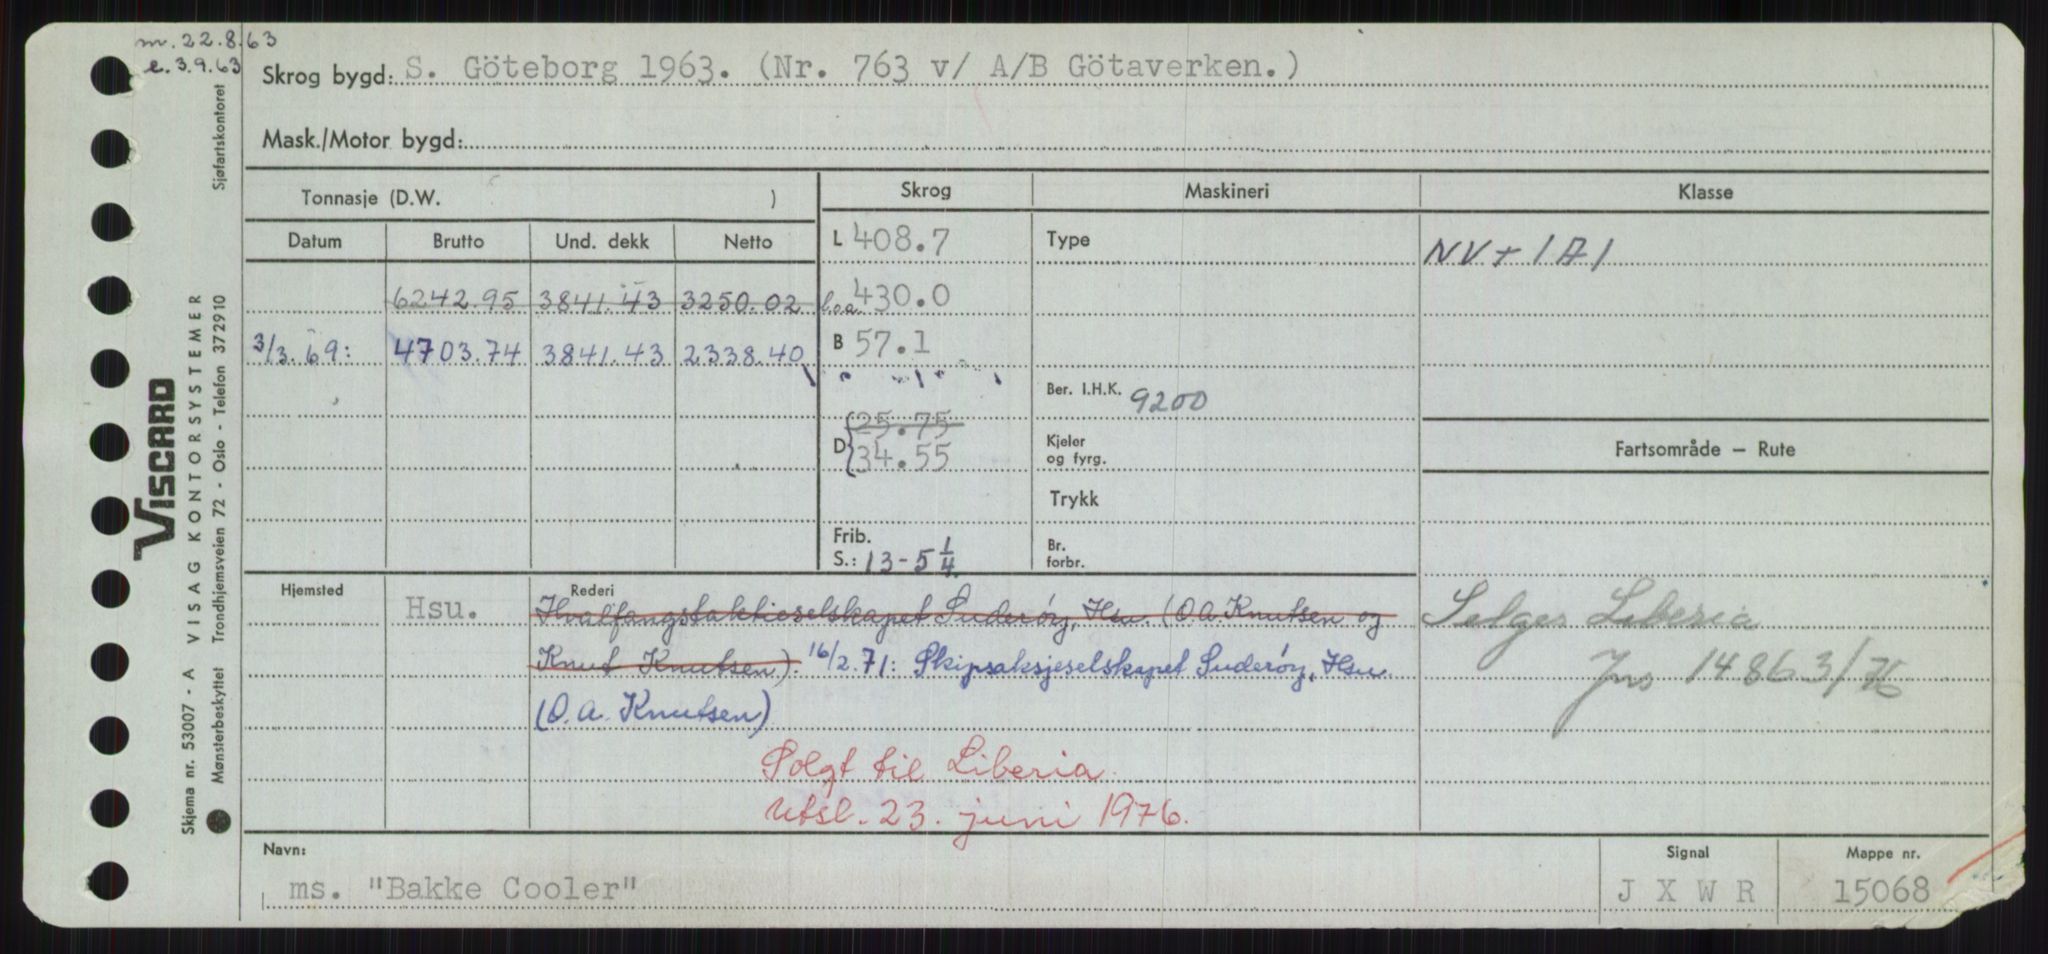 m. 22.8.63
e. 3.9.63
Skrog bygd: S. Göteborg 1963. (Nr. 763 v/ A/B Götaverken.)
Mask./Motor bygd:
Tonnasje (D.W. )
Skrog
Maskineri
Klasse
Datum Brutto Und. dekk Netto
L 408.7
Type
NV + 1A1
6242.95 3841.43 3250.02
l.oa. 430.0
3/3.69: 4703.74 3841.43 2338.40
B 57.1
Ber. I.H.K. 9200
D 25.75
34.55
Kjeler
og fyrg.
Fartsområde – Rute
Trykk
Frib.
S.: 13-5 1/4
Br.
forbr.
Hjemsted
Rederi
Hsu. Hvalfangstaktieselskapet Suderöy, Hsu. (O.A. Knutsen og
Knut Knutsen). 16/2.71: Skipsaksjeselskapet Suderöy, Hsu.
(O.A. Knutsen)
Selges Liberia
Jns 14863/76
Solgt til Liberia
Utsl. 23. juni 1976.
Navn:
ms. "Bakke Cooler"
Signal
J X W R
Mappe nr.
15068
Skjema nr. 53007 - A VISAG KONTORSYSTEMER
VISCARD
Mønsterbeskyttet Trondhjemsveien 72 - Oslo - Telefon 372910 Sjøfartskontoret